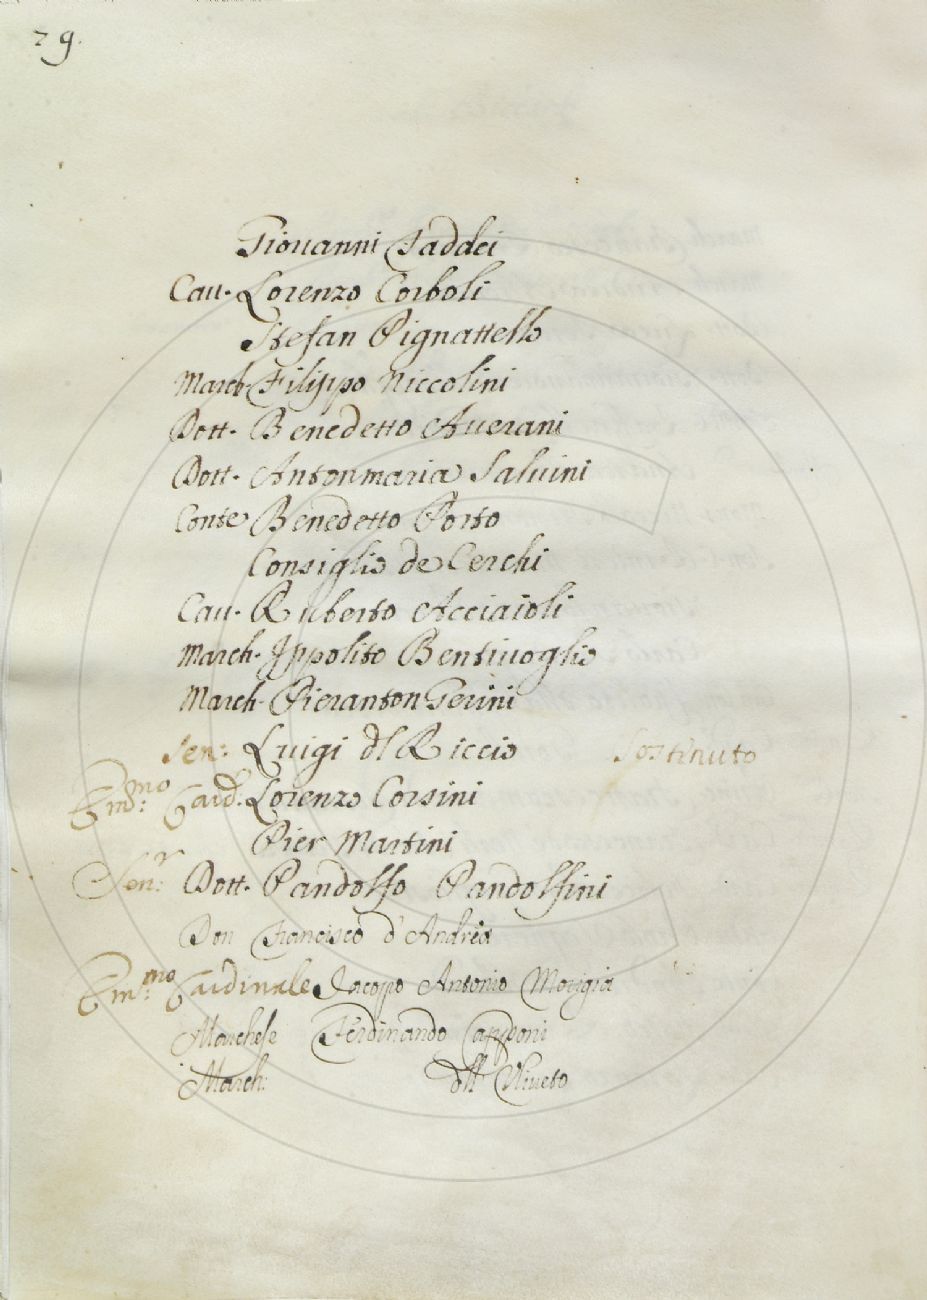 29.
Giouanni Taddei
Cau. Lorenzo Corboli
Stefan Pignattello
March. Filippo Niccolini
Dott. Benedetto Auerani
Dott. Antonmaria Saluini
Conte Benedetto Porto
Consiglio de Cerchi
Cau. Ruberto Acciaioli
March. Ippolito Bentiuoglio
March. Pieranton Gerini
Sen: Luigi dl Riccio Sostinuto
Em:mo Card: Lorenzo Corsini
Pier Martini
Sen:r Dott. Pandolfo Pandolfini
Don Francisco d'Andrea
Em:mo Cardinale Jacopo Antonio Morigia
Marchese Ferdinando Capponi
March: dll Uliueto